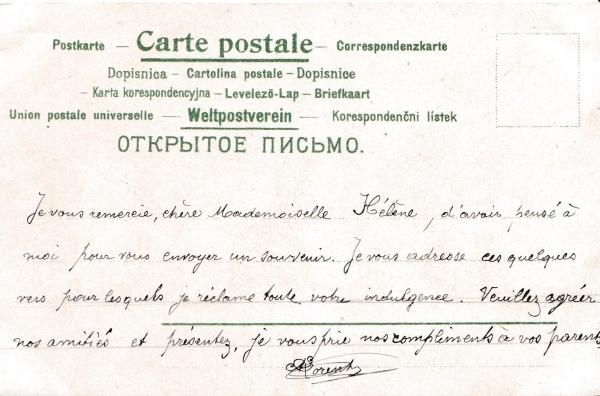 Postkarte — Carte postale — Correspondenzkarte
Dopisnica – Cartolina postale – Dopisnice
– Karta korespondencyjna – Levelező-Lap – Briefkaart
Union postale universelle — Weltpostverein — Korespondenčni lístek
ОТКРЫТОЕ ПИСЬМО.
Je vous remercie, chère Mademoiselle Hélène, d'avoir pensé à
moi pour vous envoyer un souvenir. Je vous adresse ces quelques
vers pour lesquels je réclame toute votre indulgence. Veuillez agréer
nos amitiés et présentez, je vous prie nos compliments à vos parents